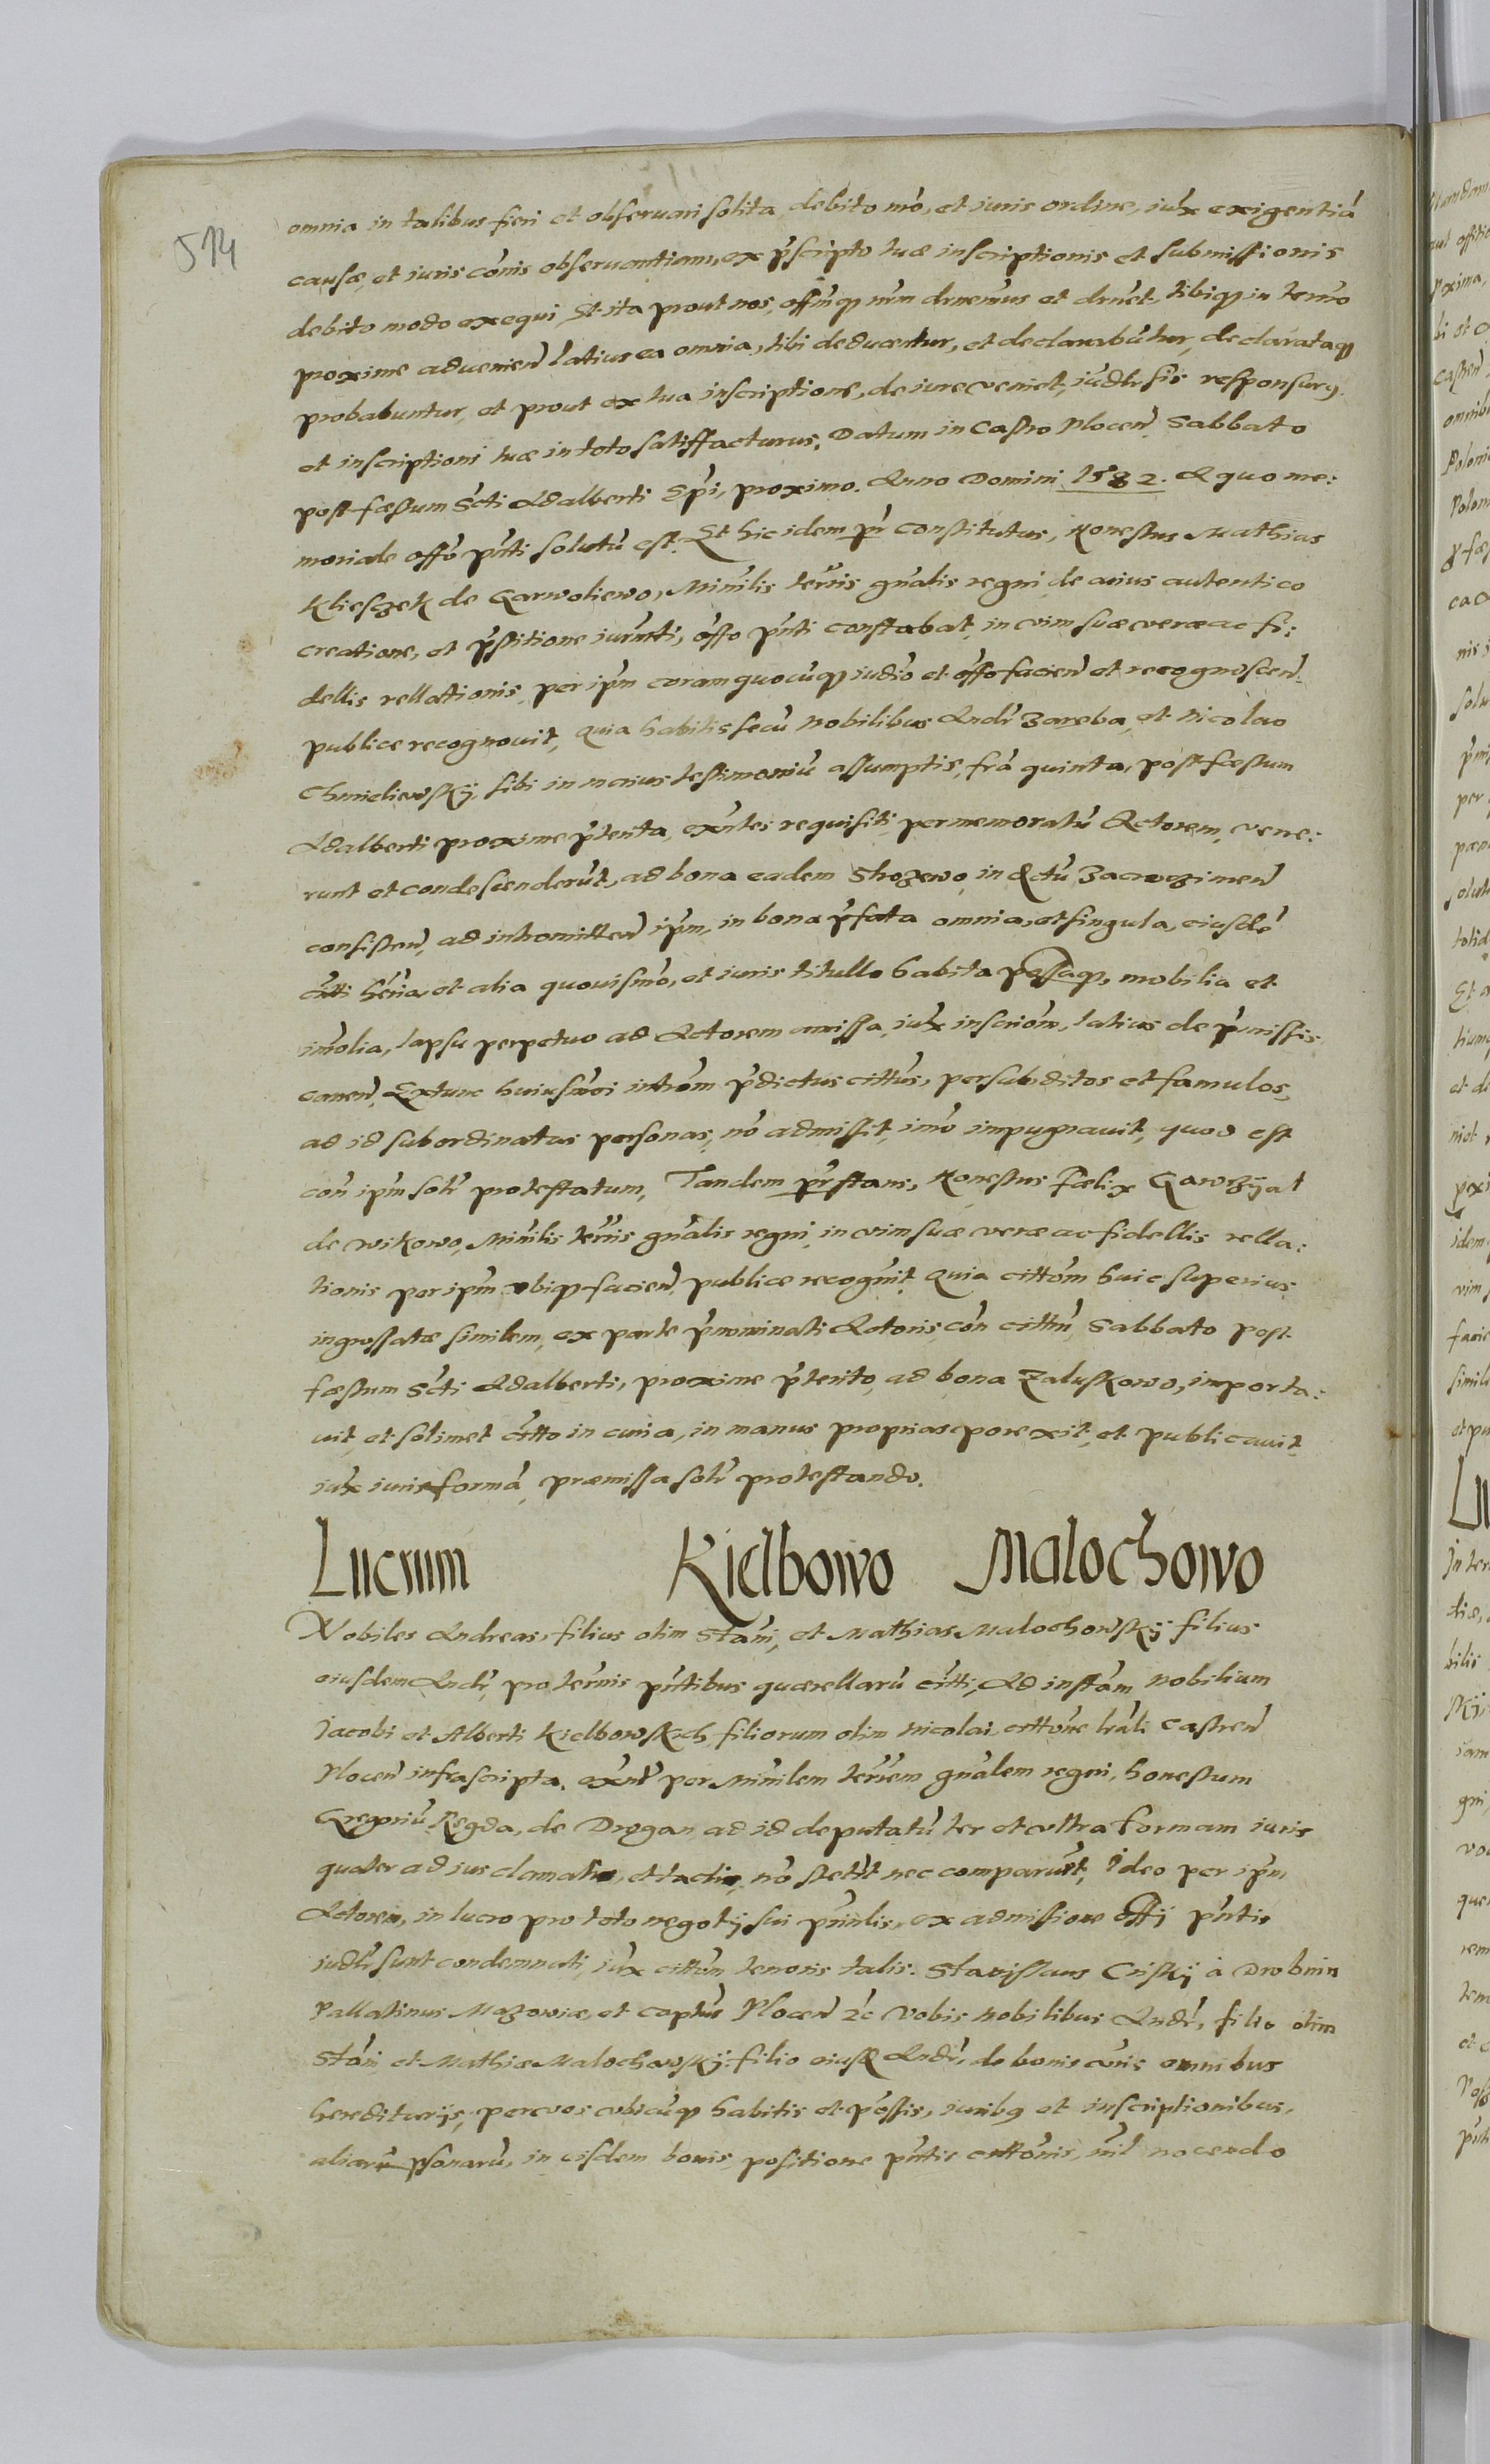 514
omnia in talibus fieri et observari solita, debito mo, et iuris ordine, iux exigentiā
causæ, et iuris cōnis observantiam, ex pscripto tuæ inscriptionis et submissionis
debito modo exequi, Et ita prout nos, offmq nrm drnemus et drnet, tibiq in termo
proxime advenien latius ea omnia, tibi deducentur, et declarabutur, declarataq
probabuntur, et prout ex tua inscriptione, de iure veniet, iudlr sis responsurq
et inscriptioni tuæ in toto satisffacturus, Datum in Castro Plocen Sabbato
post fæstum Scti Adalberti Epi, proximo. Anno Domini 1582. A quo me:
moriale offo pnti solutū est. Et hic idem pr constitutus, Honestus Mathias
Klieszek de Garwoliewo, Minrlis terris gnalis regni, de cuius autentico
creatione, et pstitione iurmti, offo pnti constabat, in vim suæ veræ ac fi:
dellis rellationis, per ipm coram quocuq iudio et offo facien et recognoscen
publice recognovit, Quia habitis secū Nobilibus Andr Zareba, et Nicolao
Chmielewskÿ, sibi in maius testimoniū assumptis, fra quinta, post fæstum
Adalberti proxime pterita, exntes requisiti per memoratū Actorem, vene:
runt et condescenderūt, ad bona eadem Strozewo, in dctū Zacroczimen
consisten, ad intromitten ipm, in bona pfata omnia, et singula, eiusdē
citti hæria, et alia quovismo, et iuris titullo habita possaq, mobilia et
imolia, lapsu perpetuo ad Actorem amissa, iux inscriom, latius de pmissis
canen, Extunc huiusmoi introm pdictus cittus, per subditos et famulos,
ad id subordinatas personas, no admissit, imo impugnavit, quod est
con ipm solr protestatum, Tandem pr stans, Honestus Fælix Gawrzÿal
de Wikowo, Minrlis terris gnalis regni, in vim suæ veræ ac fidellis rella:
tionis per ipm ubiq facien, publice recognit, Quia cittom huic superius
ingrossatæ similem, ex parte pnominati Actoris, con cittm Sabbato post
fæstum Scti Adalberti, proxime pterito, ad bona Zaluskowo, importa:
vit, et solimet citto in curia, in manus proprias porexit, et publicavit
iux iuris formā, præmissa solr protestando.
Lucrum Kielbowo Malochowo
Nobiles Andreas, filius olim Stani, et Mathias Malochowskÿ filius
eiusdem Andr, pro termis pntibus quærellarū citti, Ad instam Nobilium
Jacobi et Alberti Kielbowskich, filiorum olim Nicolai, cittone lrali Castren
Plocen infrascripta, exntr per Minrlem terrem gnalem regni, honestum
Gregoriū Regda, de Drogan ad id deputatū ter et ultra formam iuris
quater ad ius clamati, et tacti, no stetit nec comparuit, Ideo per ipm
Actorem, in lucro pro toto negotÿ sui pnnlis, ex admissione offÿ pntis
iudlr sunt condemnati, iux cittom tenoris talis. Stanislaus Criskÿ à Drobnin
Pallatinus Mazoviæ, et captus Plocen &c Vobis Nobilibus Andr, filio olim
Stani et Mathiæ Malochowskÿ filio eiusd Andr, de bonis vris omnibus
hereditarÿs, per vos ubicuq habitis et possis, iuribq et inscriptionibus,
aliarū psonarū, in eisdem bonis, positione pntis cittonis, nil nocendo